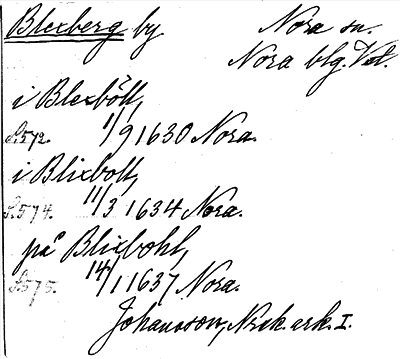 Blexberg by Nora sn.
Nora blg. Vstl.
i Blexböll,
S.572. 1/9 1630 Nora.
i Blixboll,
S.574. 11/3 1634 Nora.
på Blixbohl,
S.575. 14/1 1637 Nora.
Johansson, Nrik. ark. I.